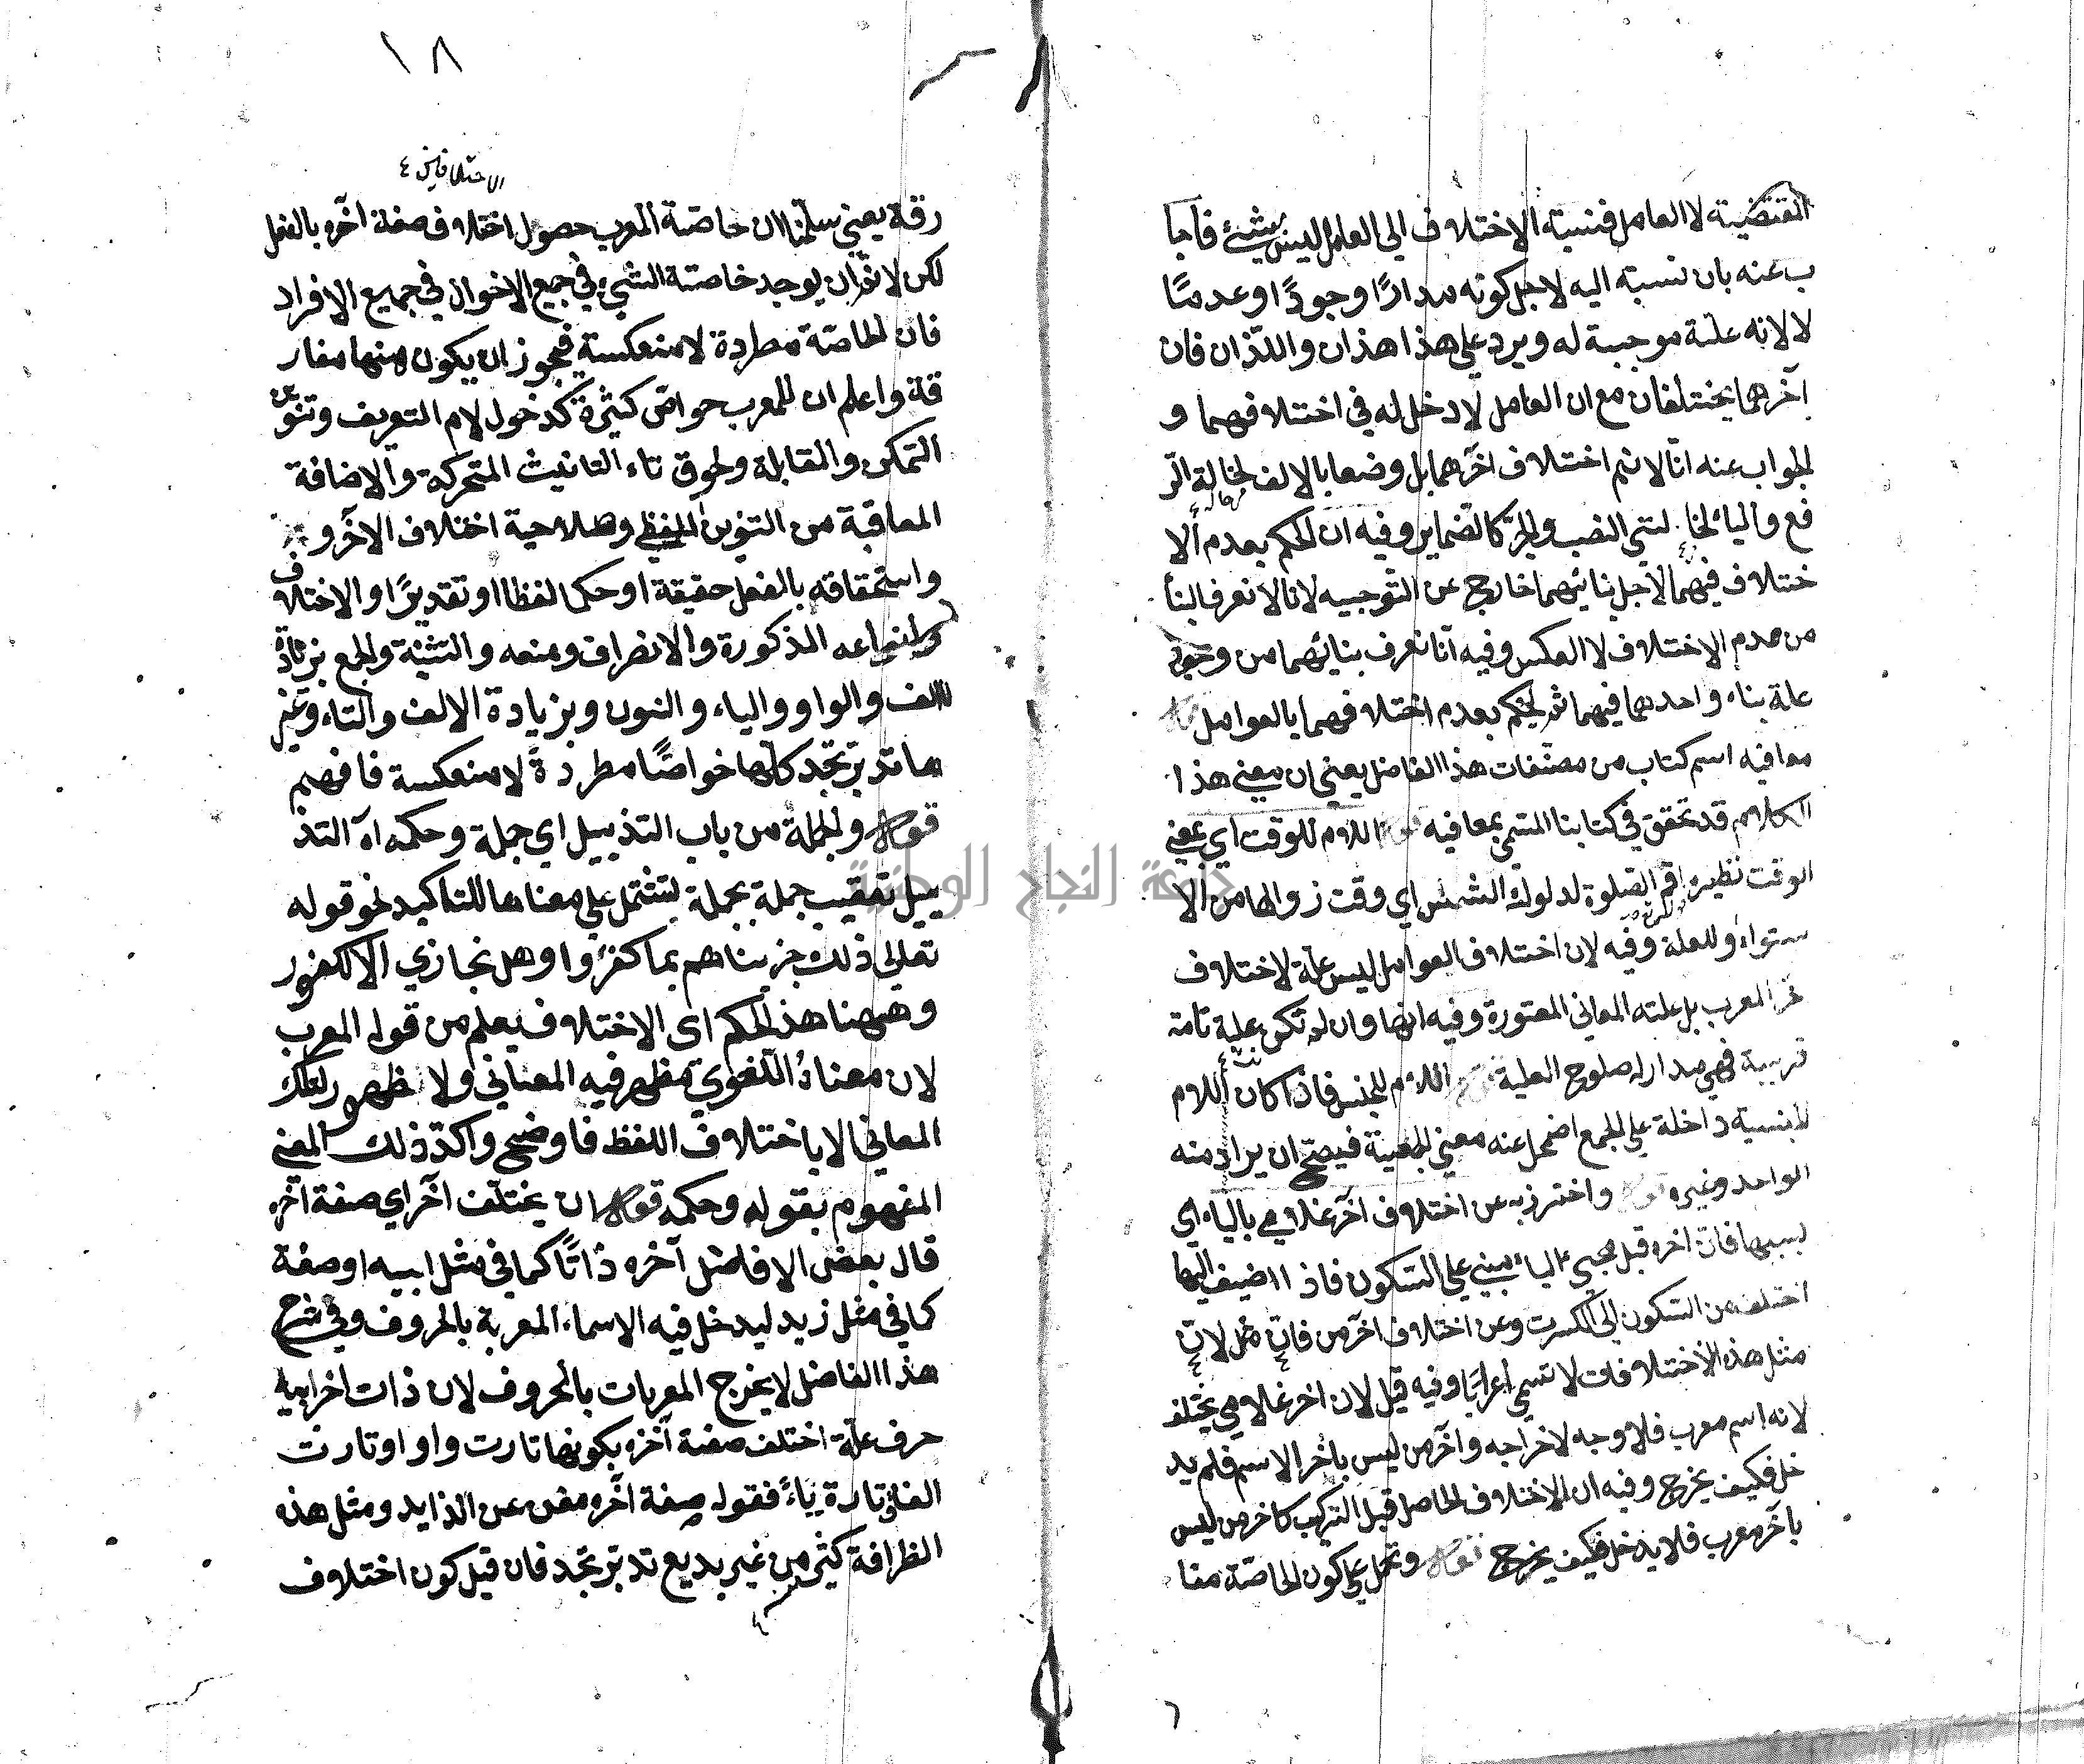 المقتضية لا العامل فنسبة الاختلاف الى العامل ليس بشئ فاجا
ب عنه بان نسبته اليه لاجل كونه مدارًا وجودًا وعدمًا
لا لانه علة موجبة له ويرد على هذا هذان واللذان فان
آخرهما يختلفان مع ان العامل لا دخل له في اختلافهما و
الجواب عنه انا لا نم اختلاف آخرهما بل وضعا بالالف لحالة الر
فع والياء لحا لتي النصب والجر كالضماير وفيه ان الحكم بعدم الا
ختلاف فيهما لاجل بنائهما خارج عن التوجيه لانا لا نعرف البنا
من عدم الاختلاف لا العكس وفيه انا نعرف بنائهما من وجود
علة بناء واحدهما فيهما ثم يحكم بعدم اختلافهما بالعوامل
معافيه اسم كتاب من مصنفات هذا الفاضل يعني ان معنى هذا
الكلام قد تحقق في كتابنا المسمى بمعافيه قوله اللام للوقت اي بمعنى
الوقت نظيره اقم الصلوة لدلوك الشمس اي وقت زوالها من الا
ستواء وللعلة وفيه لان اختلاف العوامل ليس علة لاختلاف
خر المعرب بل علته المعاني المعتورة وفيه انها وان لم تكن علة تامة
قريبة فهي مدار له صلوح العلية قوله اللام للجنس فاذا كان اللام
للجنسية داخلة على الجمع اضمحل عنه معنى الجمعية فيصح ان يراد منه
الواحد وغيره قوله واحترز به عن اختلاف آخر غلامي بالياء اي
بسببها فان اخره قبل مجيء الياء مبني على السكون فاذا اضيف اليها
اختلف من السكون الى الكسرة وعن اختلاف اخر من فان مثل لان
مثل هذه الاختلافات لا تسمى اعرابًا وفيه قيل لان اخر غلامي يختلف
لانه اسم معرب فلا وجه لاخراجه وآخر من ليس باخر الاسم فلم يد
خل فكيف يخرج وفيه ان الاختلاف الحاصل قبل التركيب كاخر من ليس
بآخر معرب فلا يدخل فكيف يخرج قوله وتحمل على كون الخاصة مفا
٦
١٨
رقة يعني سلمنا ان خاصة المعرب حصول اختلاف صفة آخره بالفعل
لكن لا نم ان يوجد خاصة الشيء في جميع الاحوال في جميع الافراد
فان الخاصة مطردة لا منعكسة فيجوز ان يكون منها مفار
قة واعلم ان للمعرب خواص كثيرة كدخول لام التعريف وتنوين
التمكن والمقابلة ولحوق تاء التانيث المتحركة والاضافة
المعاقبة من التنوين اللفظي وصلاحية اختلاف الآخر و
واستحقاقه بالفعل حقيقة او حكما لفظا او تقديرًا والاختلاف
المذكورة والانصراف ومنعه والتثنية والجمع بزيادة
الالف والواو والياء والنون وبزيادة الالف والتاء وغير
ها تدبر تجد كلها خواصًا مطردةً لا منعكسة فافهم
قوله والجملة من باب التذييل اي جملة وحكمه اه التذ
ييل تعقيب جملة بجملة يشتمل على معناها للتاكيد نحو قوله
تعالى ذلك جزيناهم بما كفروا وهل نجازي الا الكفور
وههنا هذا الحكم اي الاختلاف يعلم من قوله المعرب
لان معناه اللغوي مظهر فيه المعاني ولا ظهور لتلك
المعاني الا باختلاف اللفظ فاوضح واكد ذلك المعنى
المفهوم بقوله وحكمه قوله ان يختلف آخر اي صفة آخره
قال بعض الافاضل آخره ذاتًا كما في مثل ابيه او صفة
كما في مثل زيد ليدخل فيه الاسماء المعربة بالحروف وفي شرح
هذا الفاضل لا يخرج المعربات بالحروف لان ذات اخر ابيه
حرف علة اختلف صفة آخره بكونها تارت واو او تارت
الفا وتارة ياءً فقوله صفة آخره مغن عن الزايد ومثل هذه
الظرافة كثير من غير بديع تدبر تجد فان قيل كون اختلاف